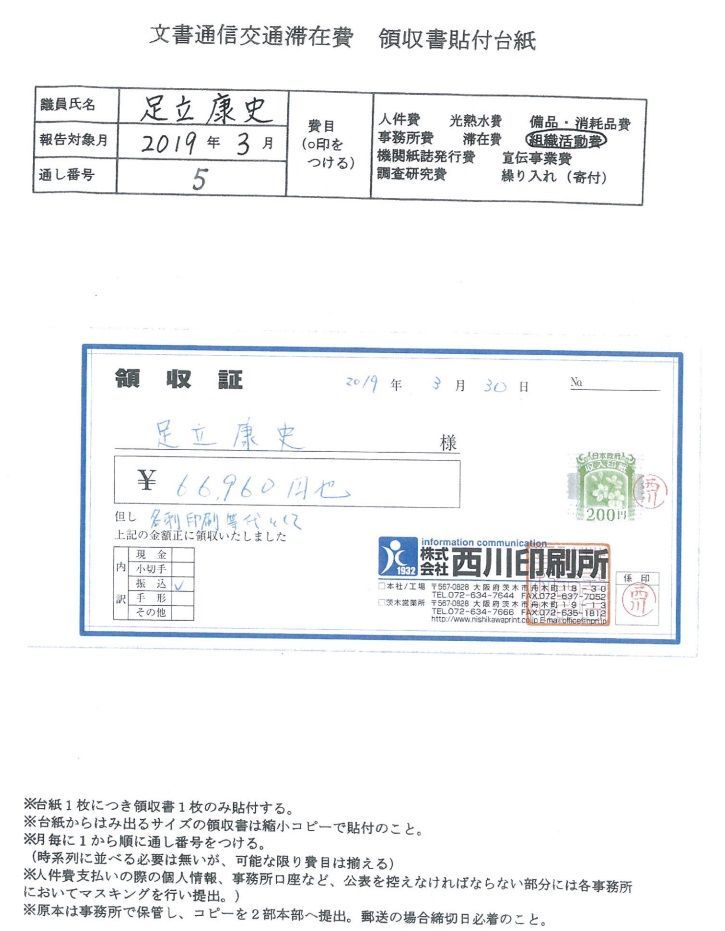 文書通信交通滞在費　領収書貼付台紙
議員氏名 足立 康史
報告対象月 2019 年 3 月
通し番号 5
費目
(○印を
つける)
人件費　光熱水費　備品・消耗品費
事務所費　滞在費　組織活動費
機関紙誌発行費　宣伝事業費
調査研究費　繰り入れ（寄付）
領収証 2019 年 3 月 30 日 No
足立康史 様
¥ 66,960円也
日本政府
収入印紙
200円
西川
但し 名刺印刷等代として
上記の金額正に領収いたしました
内訳
現金
小切手
振込 ✓
手形
その他
information communication
1932 株式会社 西川印刷所
□本社/工場 〒567-0828 大阪府茨木市舟木町18-30
TEL.072-634-7644 FAX.072-637-7052
□茨木営業所 〒567-0828 大阪府茨木市舟木町19-13
TEL.072-634-7666 FAX.072-635-1812
http://www.nishikawaprint.co.jp E-mail:office@npri.jp
係印
西川
※台紙１枚につき領収書１枚のみ貼付する。
※台紙からはみ出るサイズの領収書は縮小コピーで貼付のこと。
※月毎に１から順に通し番号をつける。
（時系列に並べる必要は無いが、可能な限り費目は揃える）
※人件費支払いの際の個人情報、事務所口座など、公表を控えなければならない部分には各事務所
においてマスキングを行い提出。）
※原本は事務所で保管し、コピーを２部本部へ提出。郵送の場合締切日必着のこと。